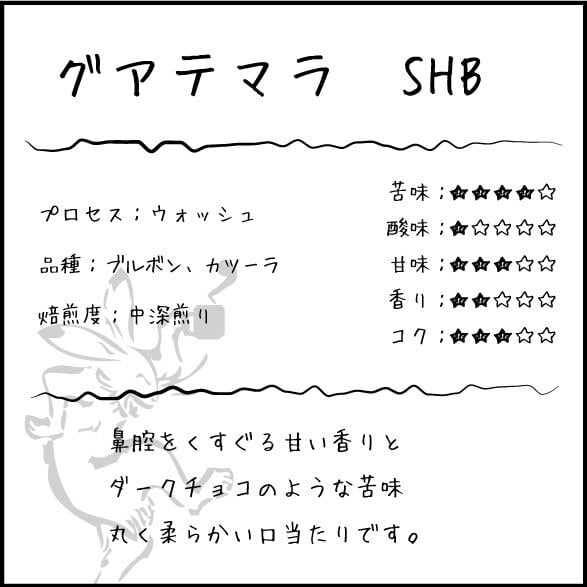 グアテマラ SHB
プロセス；ウォッシュ
品種；ブルボン、カツーラ
焙煎度；中深煎り
苦味；★★★★☆
酸味；★☆☆☆☆
甘味；★★★☆☆
香り；★★☆☆☆
コク；★★★☆☆
鼻腔をくすぐる甘い香りと
ダークチョコのような苦味
丸く柔らかい口当たりです。